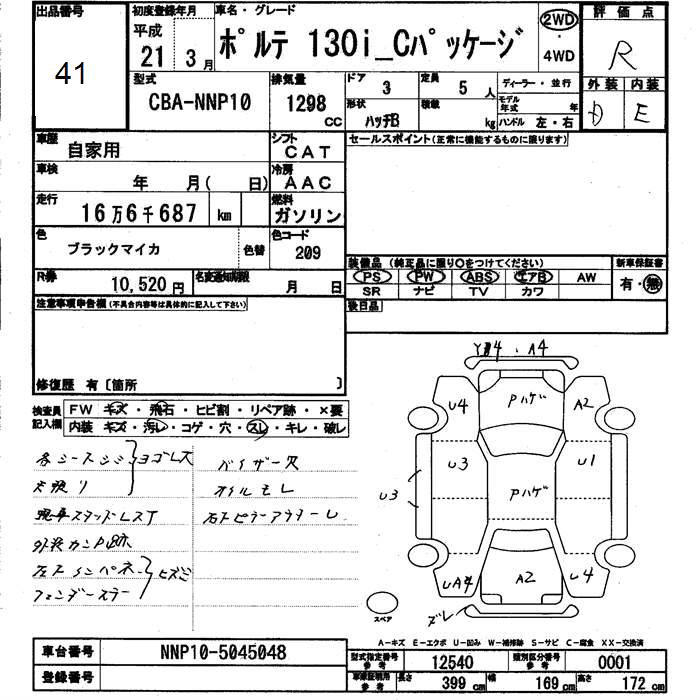 出品番号 初度登録年月 車名・グレード 2WD 評価点
41 平成 21 3月 ポルテ 130i_Cパッケージ 4WD R
型式 排気量 ドア 3 定員 5人 ディーラー・並行 外装 内装
CBA-NNP10 1298 cc 形状 ハッチB 積載 kg モデル年式 年 ハンドル 左・右 D E
車歴 自家用 シフト CAT セールスポイント(正常に機能するものに限ります)
車検 年 月( 日) 冷房 AAC
走行 16万6千687 km 燃料 ガソリン
色 ブラックマイカ 色替 色コード 209
装備品(純正品に限り○をつけてください) 新車保証書
R券 10,520円 名変通知期限 月 日 PS PW ABS エアB AW 有・無
SR ナビ TV カワ
注意事項申告欄(不具合内容等は具体的に記入して下さい) 後日品
修復歴 有〔箇所 〕
検査員記入欄 FW キズ・飛石・ヒビ割・リペア跡・×要
内装 キズ・汚レ・コゲ・穴・スレ・キレ・破レ
各シートシミ ヨゴレス バイザー欠
天張リ オイルモレ
現車スタッドレスT
外装カンP跡
ヒズミ
A4
U4 Pハゲ A2
U3 U3 Pハゲ U1
UA4 A2 U4
スペア ズレ
A-キズ E-エクボ U-凹み W-補修跡 S-サビ C-腐食 XX-交換済
車台番号 NNP10-5045048 型式指定番号 参考 12540 類別区分番号 参考 0001
登録番号 車庫証明用 参考 長さ 399cm 幅 169cm 高さ 172cm